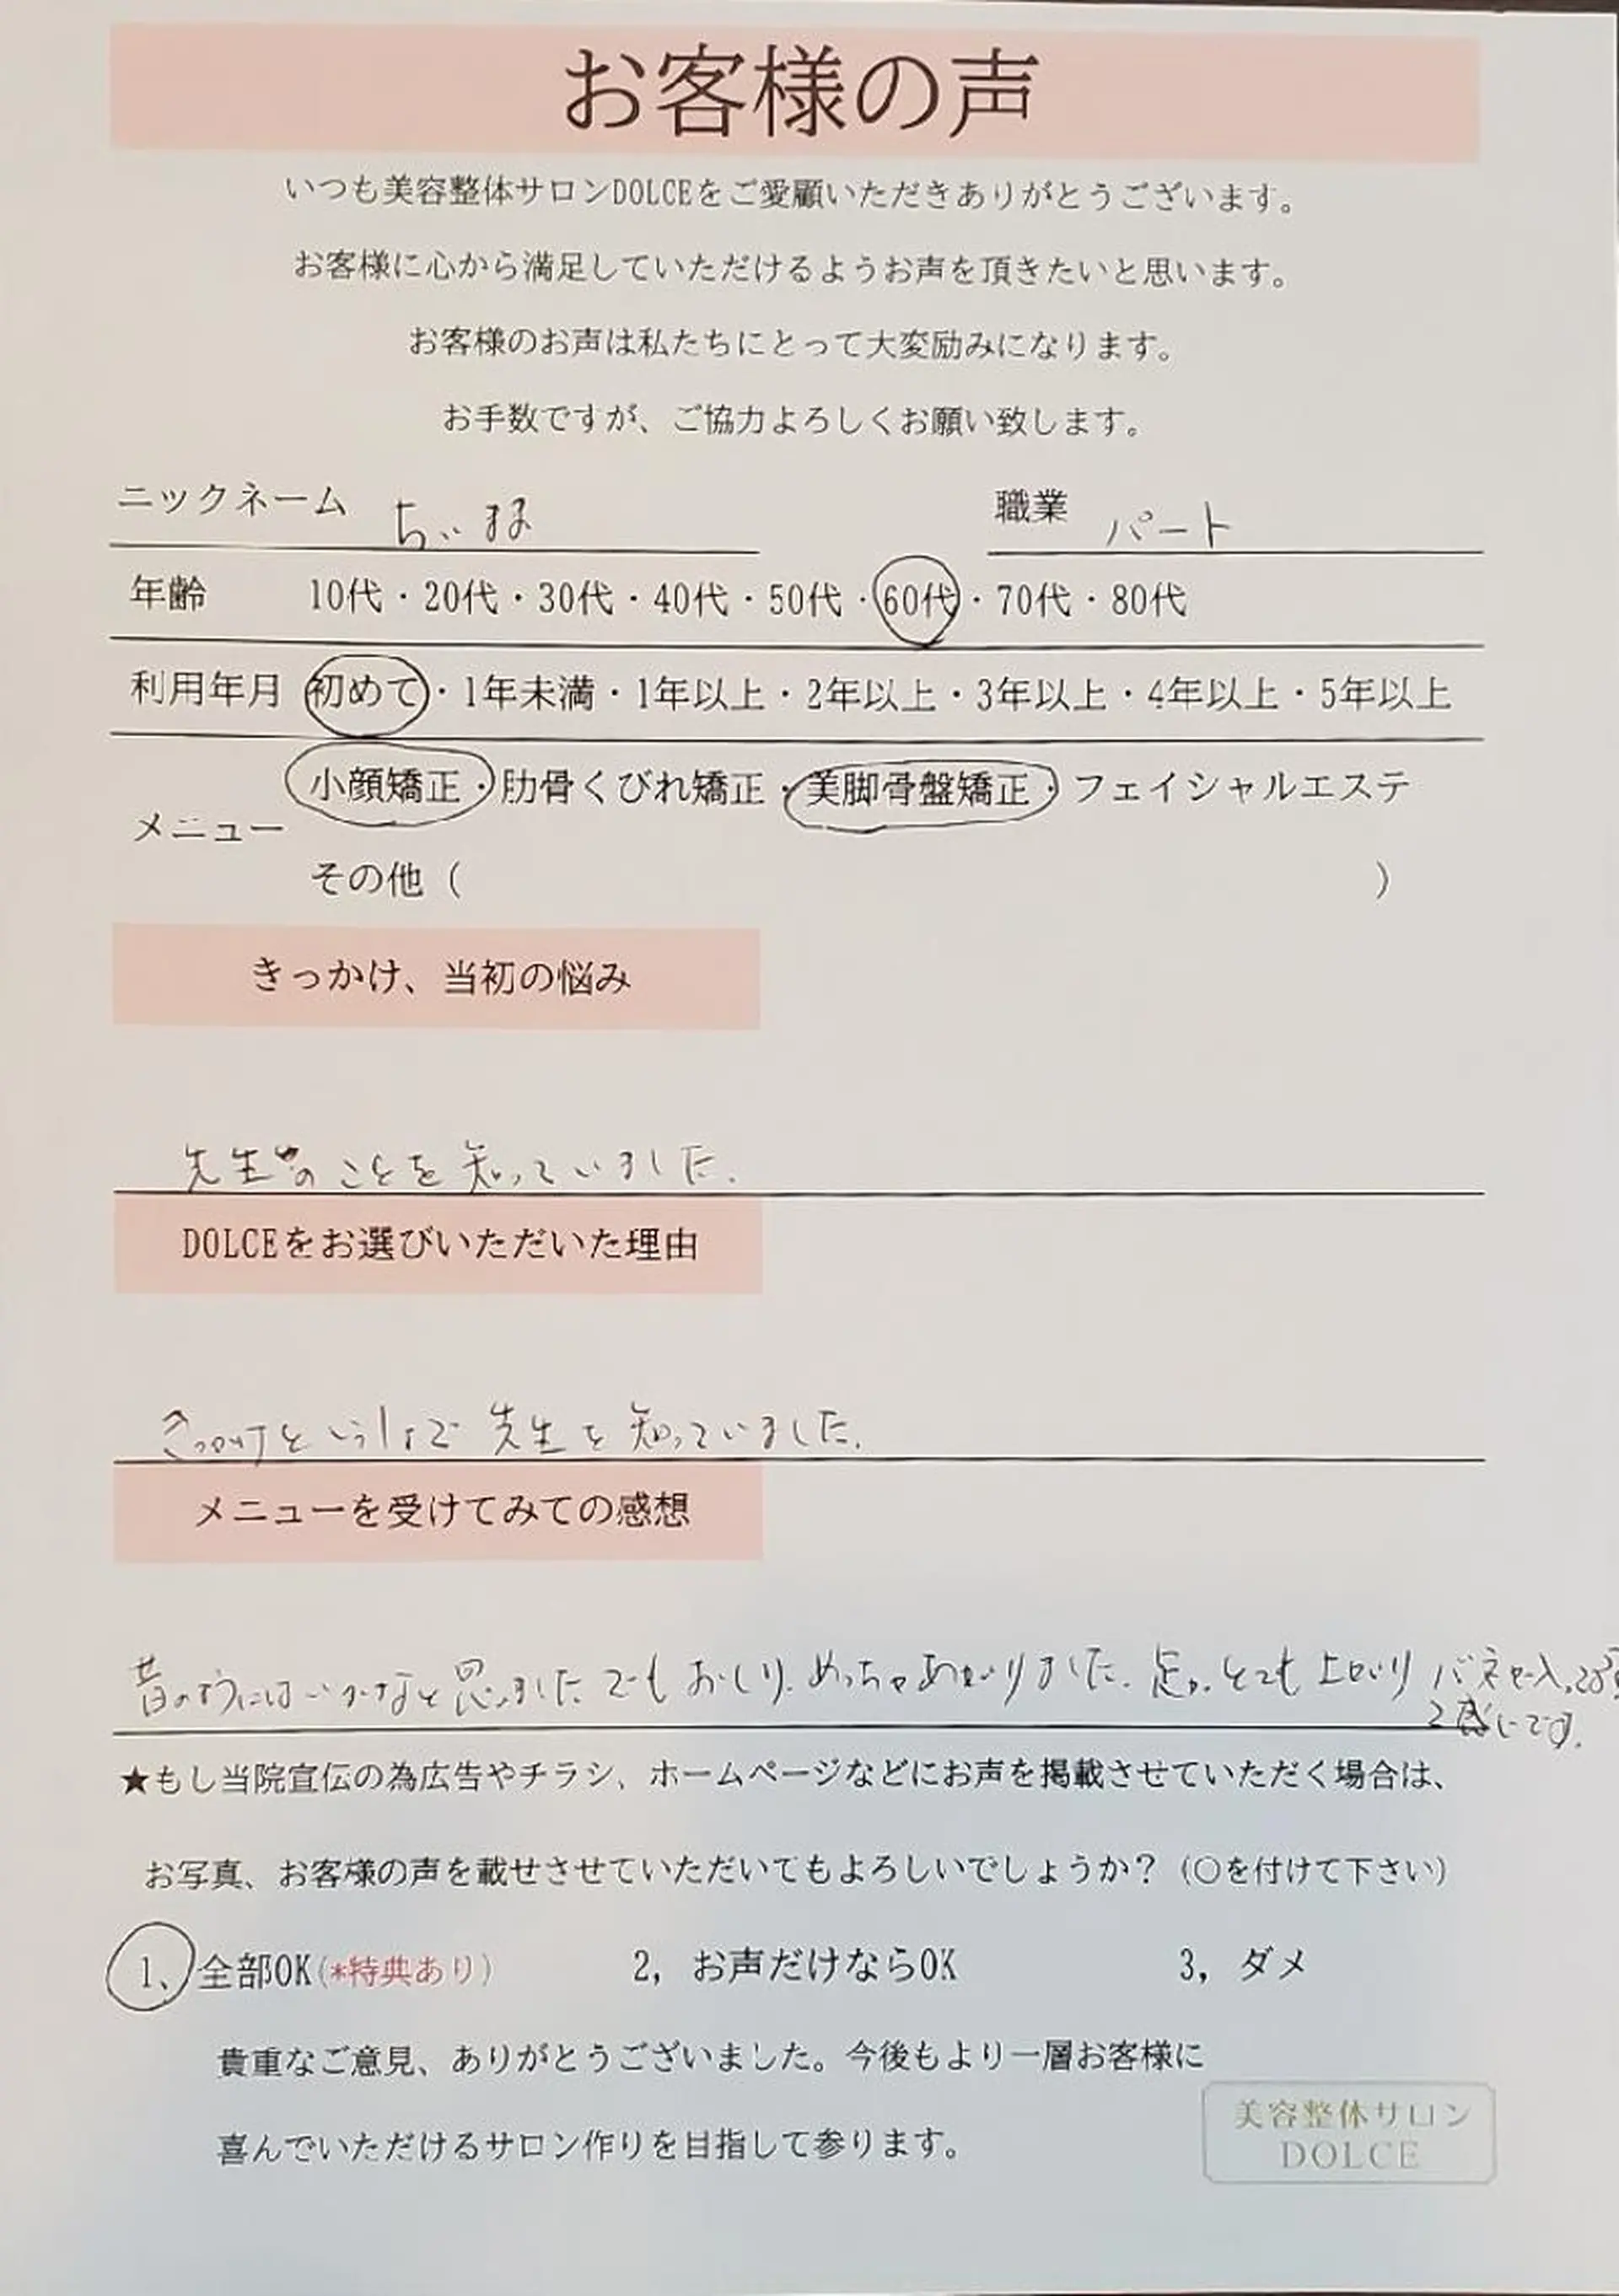 お客様の声
いつも美容整体サロンDOLCEをご愛顧いただきありがとうございます。
お客様に心から満足していただけるようお声を頂きたいと思います。
お客様のお声は私たちにとって大変励みになります。
お手数ですが、ご協力よろしくお願い致します。
ニックネーム ちぃまま 職業 パート
年齢 10代・20代・30代・40代・50代・60代・70代・80代
利用年月 初めて・1年未満・1年以上・2年以上・3年以上・4年以上・5年以上
小顔矯正・肋骨くびれ矯正・美脚骨盤矯正・フェイシャルエステ
メニュー
その他( )
きっかけ、当初の悩み
先生のことを知っていました.
DOLCEをお選びいただいた理由
きっかけと 先生を知っていました.
メニューを受けてみての感想
昔のようにはいかないと思いました でもおしり.めっちゃあがりました.足が.とても上がり バネを入
感じです.
★もし当院宣伝の為広告やチラシ、ホームページなどにお声を掲載させていただく場合は、
お写真、お客様の声を載せさせていただいてもよろしいでしょうか?(〇を付けて下さい)
1、全部OK(*特典あり) 2, お声だけならOK 3, ダメ
貴重なご意見、ありがとうございました。今後もより一層お客様に
喜んでいただけるサロン作りを目指して参ります。
美容整体サロン
DOLCE